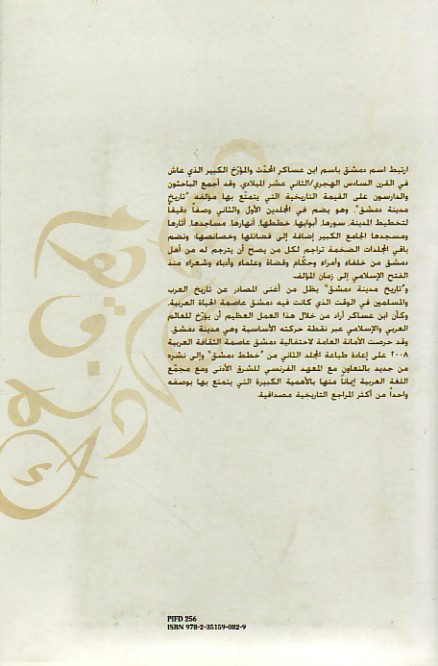 ارتبط اسم دمشق باسم ابن عساكر المحدّث والمؤرّخ الكبير الذي عاش
في القرن السادس الهجري/الثاني عشر الميلادي. وقد أجمع الباحثون
والدارسون على القيمة التاريخية التي يتمتّع بها مؤلفه "تاريخ
مدينة دمشق". وهو يضم في المجلدين الأول والثاني وصفاً دقيقاً
لتخطيط المدينة، سورها، أبوابها، خططها، أنهارها، مساجدها، آثارها
ومسجدها الجامع الكبير إضافة إلى فضائلها وخصائصها. وتضم
باقي المجلدات الضخمة تراجم لكل من يصح أن يترجم له من أهل
دمشق من خلفاء وأمراء وحكّام وقضاة وعلماء وأدباء وشعراء منذ
الفتح الإسلامي إلى زمان المؤلف.
و"تاريخ مدينة دمشق" يظل من أغنى المصادر عن تاريخ العرب
والمسلمين في الوقت الذي كانت فيه دمشق عاصمة الحياة العربية.
وكأن ابن عساكر أراد من خلال هذا العمل العظيم أن يؤرّخ للعالم
العربي والإسلامي عبر نقطة حركته الأساسية وهي مدينة دمشق.
وقد حرصت الأمانة العامة لاحتفالية دمشق عاصمة الثقافة العربية
٢٠٠٨ على إعادة طباعة المجلد الثاني من "خطط دمشق" وإلى نشره
من جديد بالتعاون مع المعهد الفرنسي للشرق الأدنى ومع مجمّع
اللغة العربية إيماناً منها بالأهمية الكبيرة التي يتمتع بها بوصفه
واحداً من أكثر المراجع التاريخية مصداقية.
PIFD 256
ISBN 978-2-35159-082-9